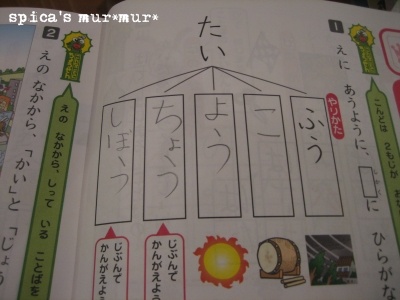 spica's mur*mur*
1
えに あうように、□に
ひらがな
こんどは 2もじが
たい
やりかた
ふう
こ
よう
ちょう
しぼう
じぶんで
かんがえよう
じぶんで
かんがえよう
2
えの なかから、しって いる ことばを
えの なかから、「かい」と 「じょう